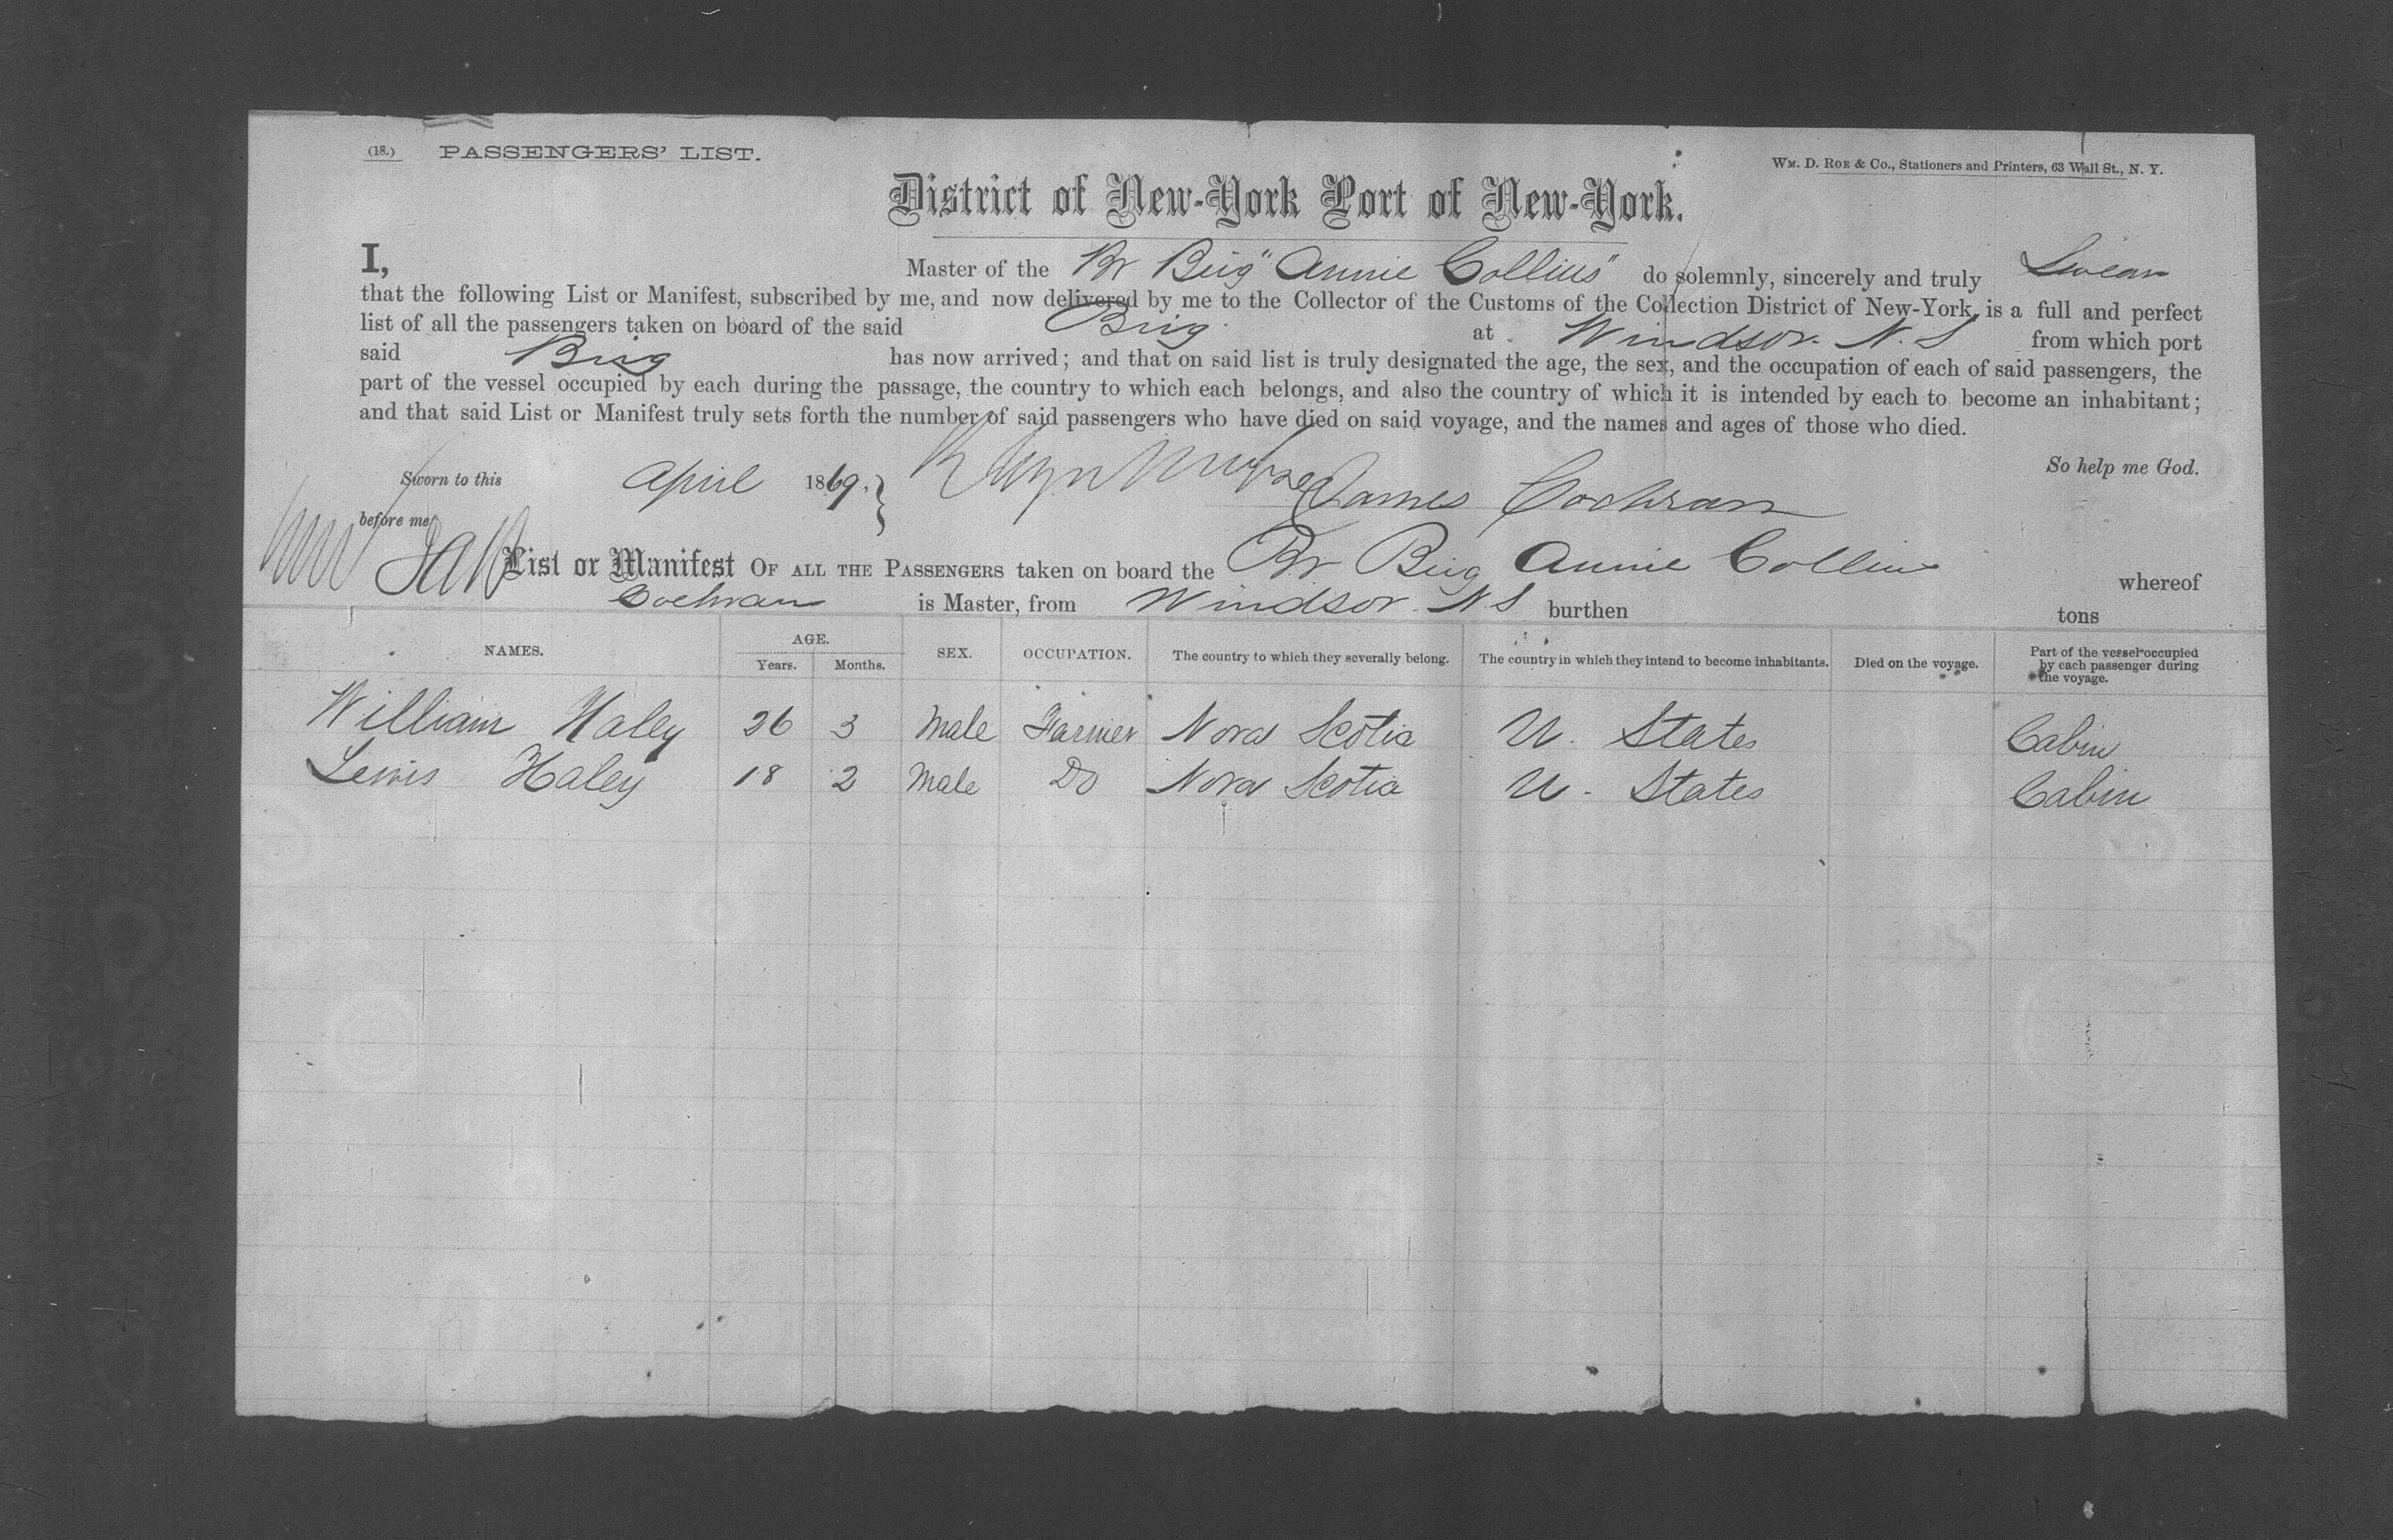 (18.) PASSENGERS' LIST.
WM. D. ROE & CO., Stationers and Printers, 63 Wall St., N. Y.
District of New-York Port of New-York.
I, Master of the Br Brig "Annie Collins" do solemnly, sincerely and truly Swear
that the following List or Manifest, subscribed by me, and now delivered by me to the Collector of the Customs of the Collection District of New-York, is a full and perfect
list of all the passengers taken on board of the said Brig at Windsor. N.S from which port
said Brig has now arrived; and that on said list is truly designated the age, the sex, and the occupation of each of said passengers, the
part of the vessel occupied by each during the passage, the country to which each belongs, and also the country of which it is intended by each to become an inhabitant;
and that said List or Manifest truly sets forth the number of said passengers who have died on said voyage, and the names and ages of those who died.
So help me God.
Sworn to this April 1869. } James Cochran
before me
List or Manifest OF ALL THE PASSENGERS taken on board the Br Brig Annie Collins whereof
Cochran is Master, from Windsor. N.S burthen tons
NAMES. AGE. Years. Months. SEX. OCCUPATION. The country to which they severally belong. The country in which they intend to become inhabitants. Died on the voyage. Part of the vessel occupied by each passenger during the voyage.
William Haley 26 3 Male Farmer Nova Scotia U. States Cabin
Lewis Haley 18 2 Male Do Nova Scotia U. States Cabin